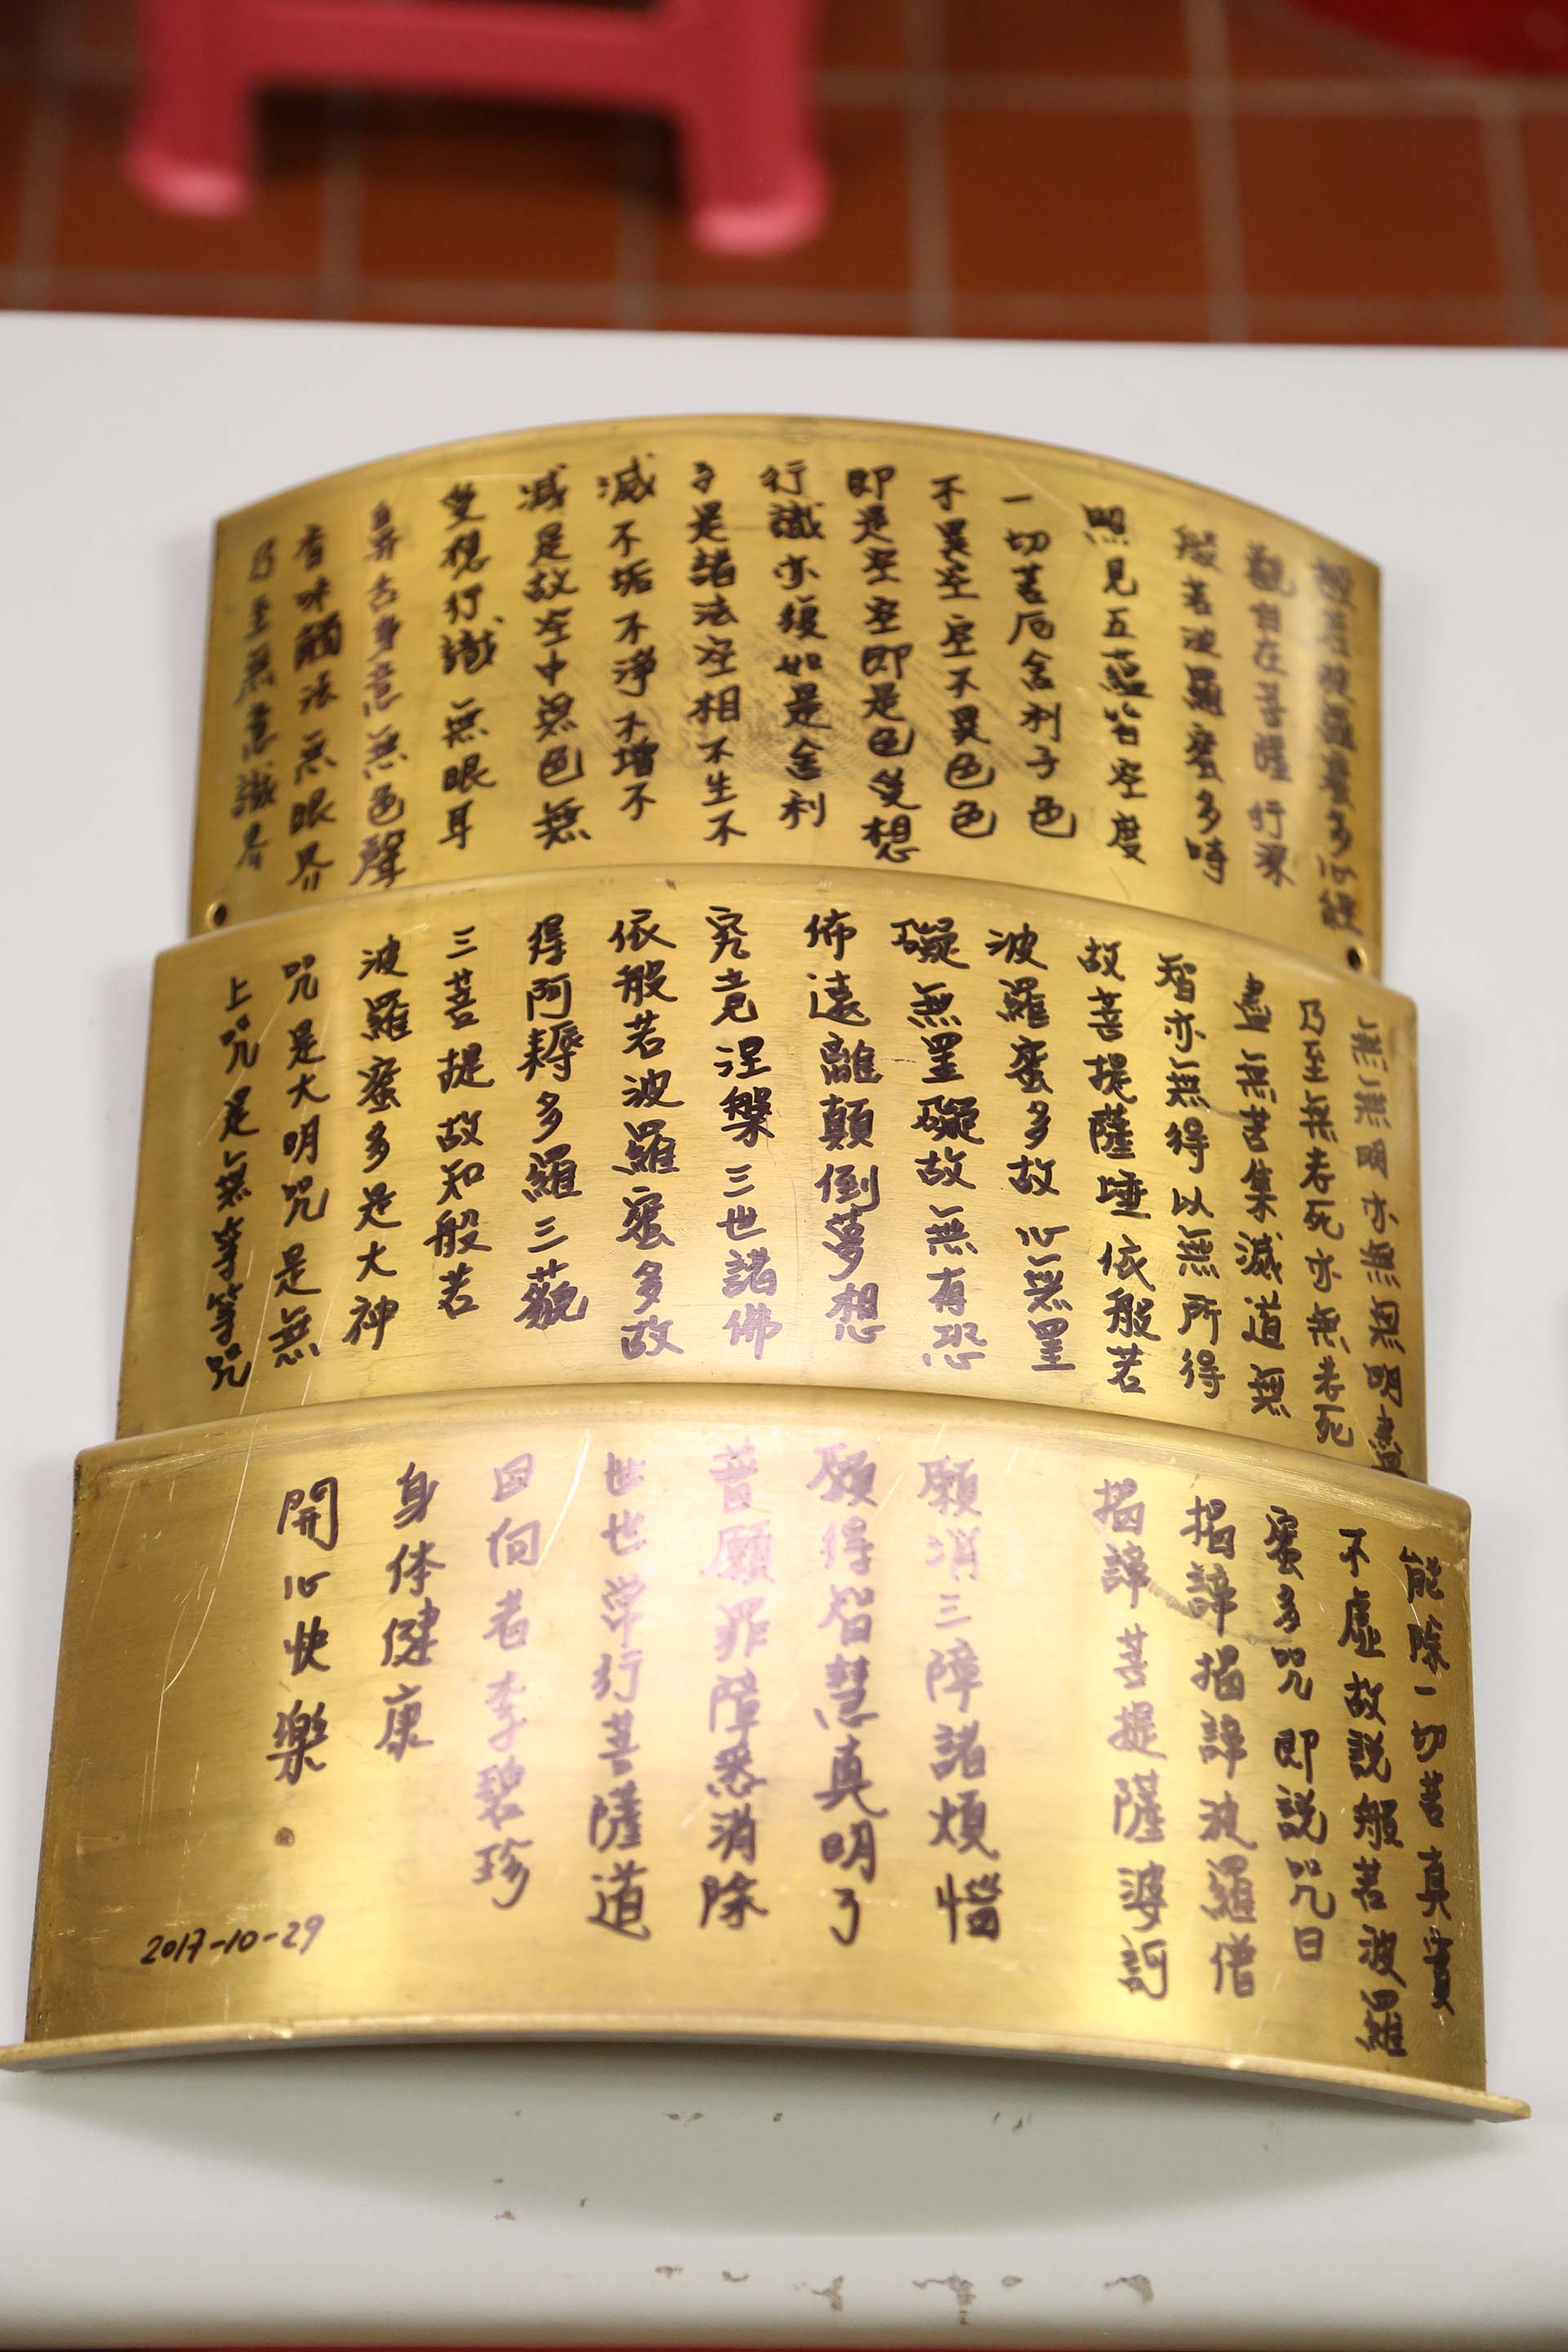 般若波羅蜜多心經
觀自在菩薩行深
般若波羅蜜多時
照見五蘊皆空度
一切苦厄舍利子色
不異空空不異色色
即是空空即是色受想
行識亦復如是舍利
子是諸法空相不生不
滅不垢不淨不增不
減是故空中無色無
受想行識無眼耳
鼻舌身意無色聲
香味觸法無眼界
乃至無意識界
無無明亦無無明盡
乃至無老死亦無老死
盡無苦集滅道無
智亦無得以無所得
故菩提薩埵依般若
波羅蜜多故心無罣
礙無罣礙故無有恐
佈遠離顛倒夢想
究竟涅槃三世諸佛
依般若波羅蜜多故
得阿耨多羅三藐
三菩提故知般若
波羅蜜多是大神
咒是大明咒是無
上咒是無等等咒
能除一切苦真實
不虛故説般若波羅
蜜多咒即説咒曰
揭諦揭諦波羅僧
揭諦菩提薩婆訶
願消三障諸煩惱
願得智慧真明了
普願罪障悉消除
世世常行菩薩道
回向者李碧珍
身体健康
開心快樂。
2017-10-29